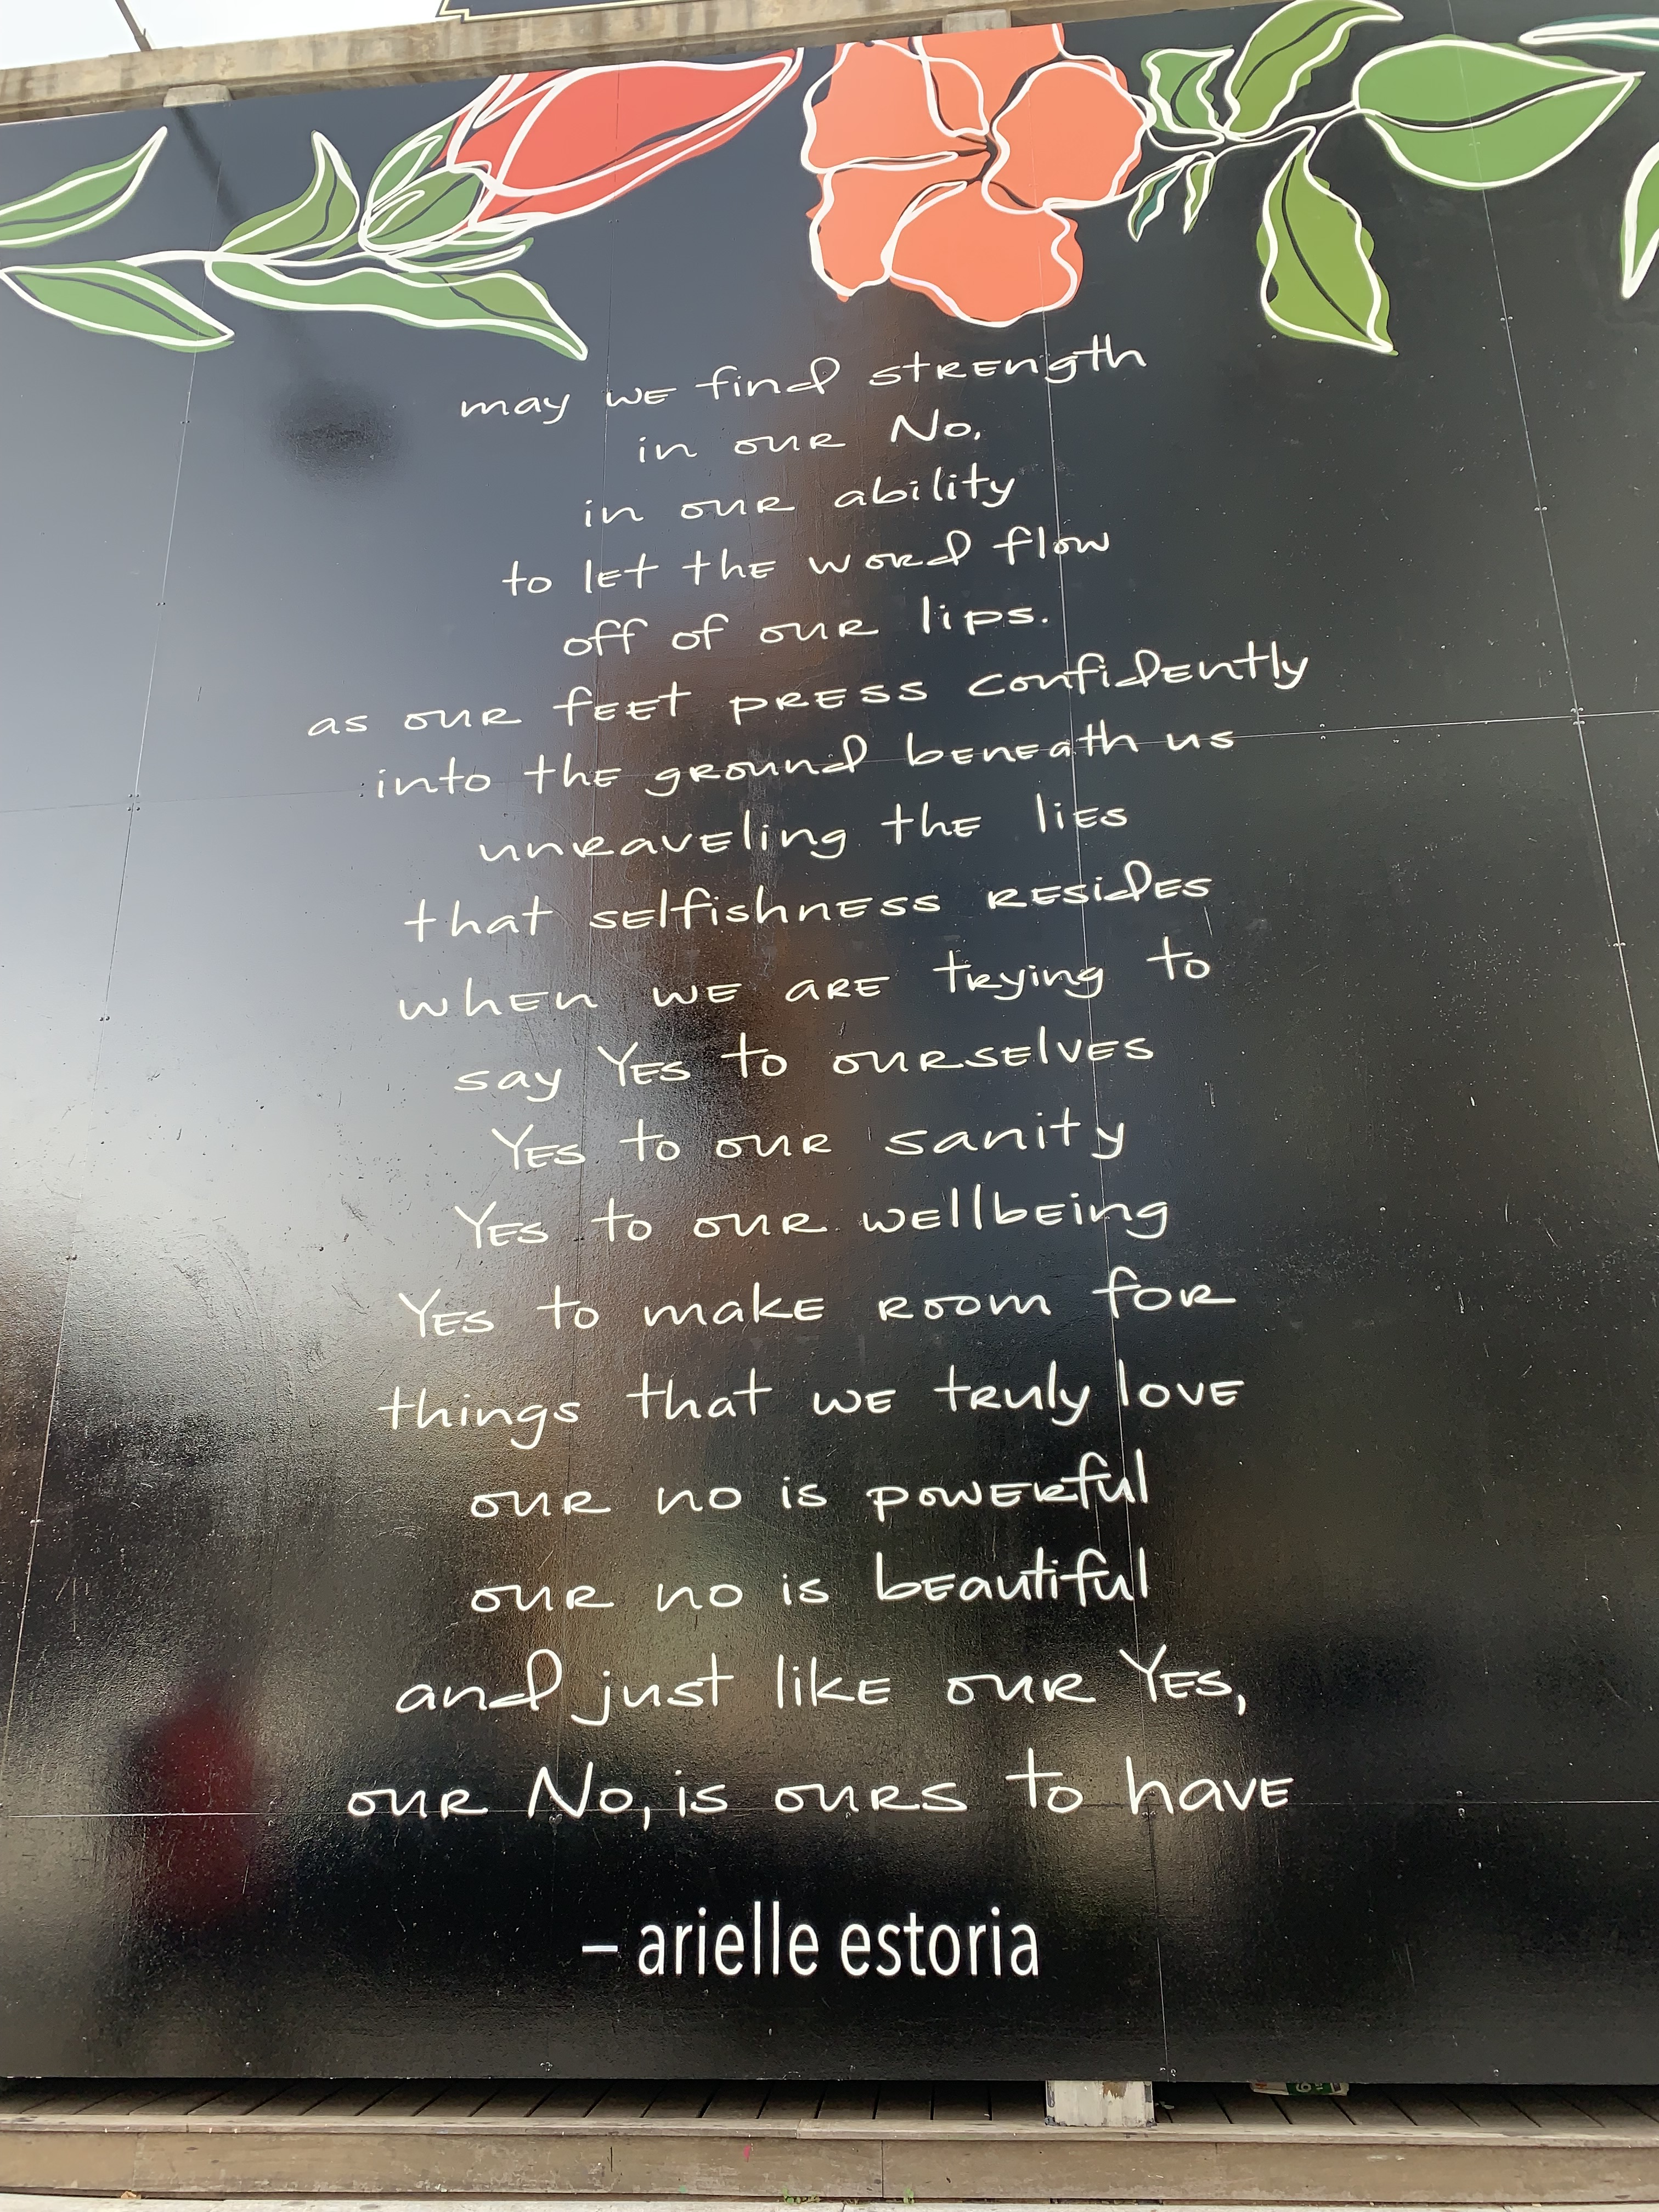 may we find strength
in our No.
in our ability
to let the word flow
off of our lips.
as our feet press confidently
into the ground beneath us
unraveling the lies
that selfishness resides
when we are trying to
say Yes to ourselves
Yes to our sanity
Yes to our wellbeing
Yes to make room for
things that we truly love
our no is powerful
our no is beautiful
and just like our Yes,
our No, is ours to have
– arielle estoria